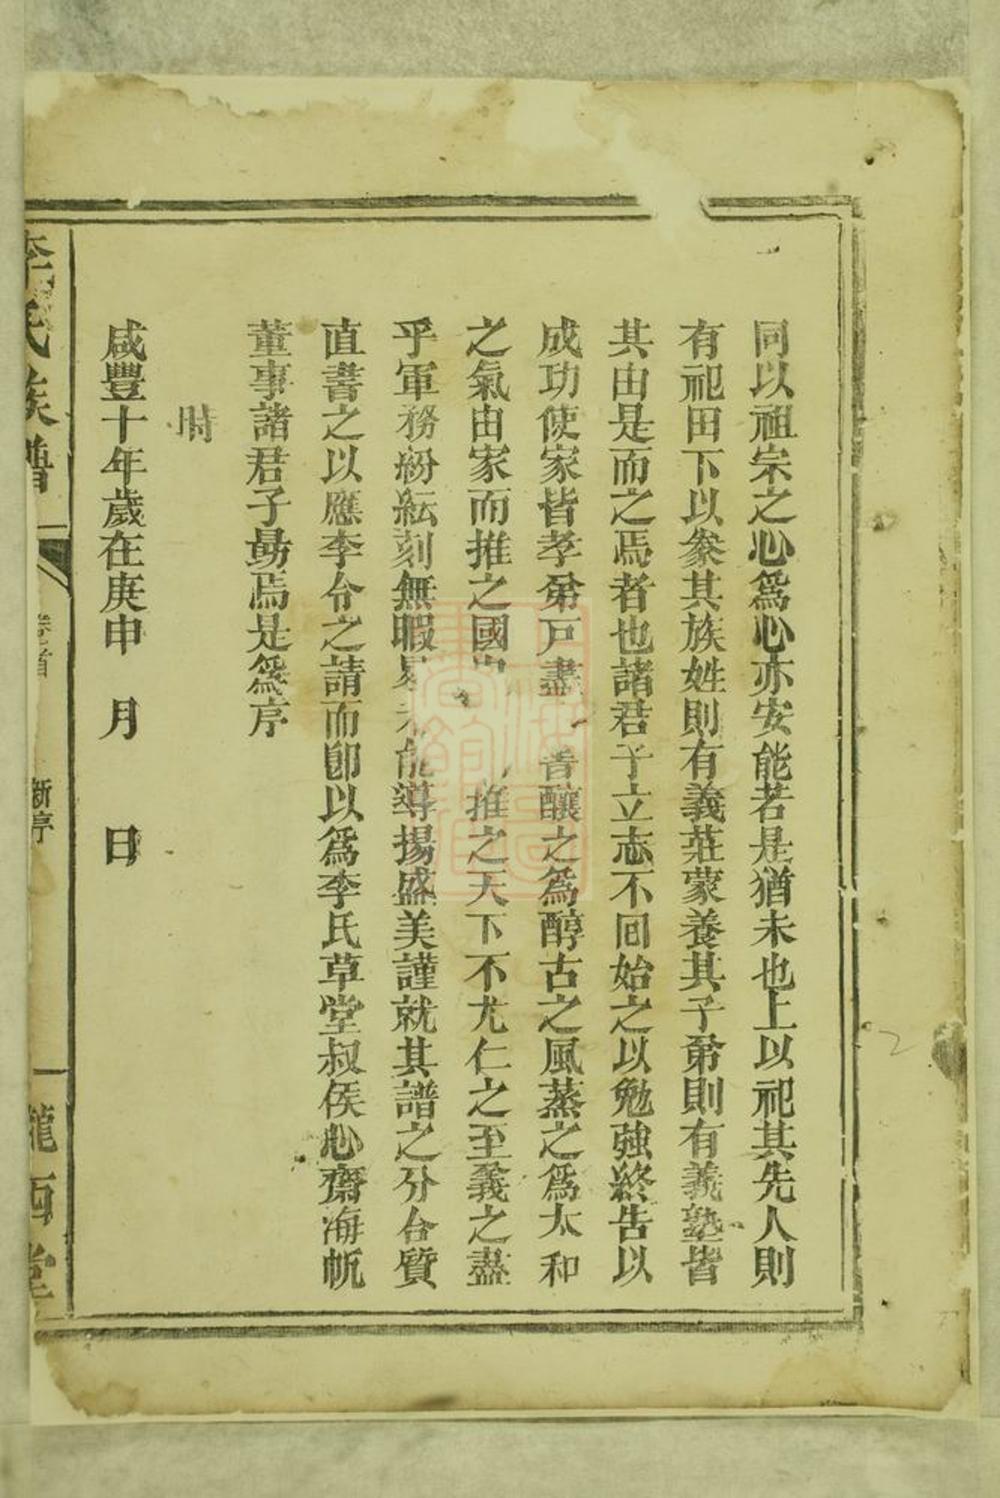 同以祖宗之心爲心亦安能若是猶未也上以祀其先人則
有祀田下以叅其族姓則有義莊蒙養其子弟則有義塾皆
其由是而之焉者也諸君子立志不回始之以勉強終告以
成功使家皆孝弟戸盡 音釀之爲醇古之風蒸之爲太和
之氣由家而推之國 推之天下不尤仁之至義之盡
乎軍務紛紜刻無暇 未能導揚盛美謹就其譜之分合質
直書之以應李令之請而卽以爲李氏草堂叔侯心齋海帆
董事諸君子勗焉是爲序
時
咸豐十年歲在庚申 月 日
李氏族譜 卷首 新序 隴西堂